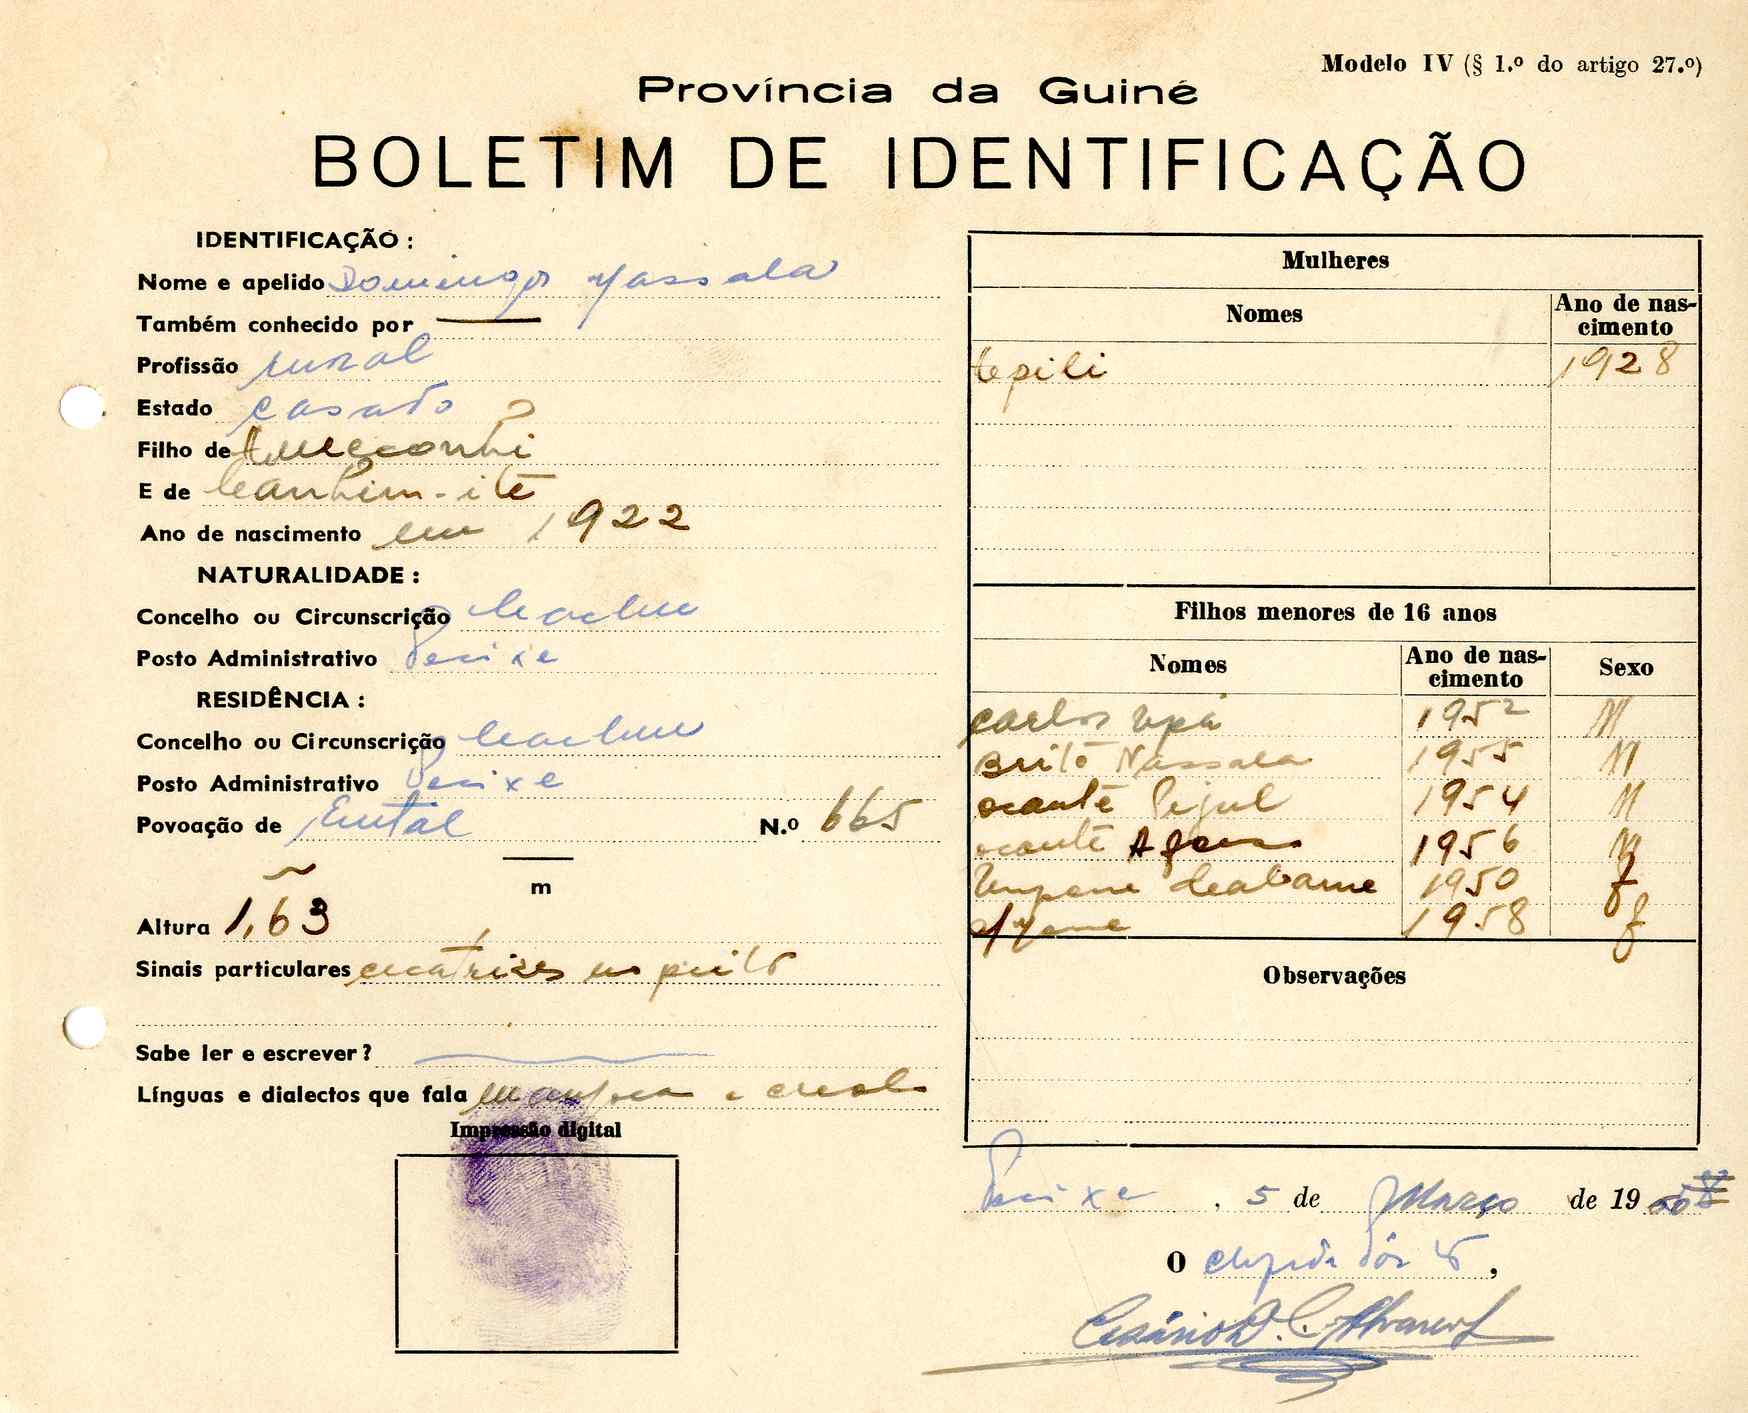 Modelo IV (§ 1.º do artigo 27.º)
Província da Guiné
BOLETIM DE IDENTIFICAÇÃO
IDENTIFICAÇÃO :
Nome e apelido Domingos
Também conhecido por
Profissão rural
Estado casado
Filho de
E de
Ano de nascimento em 1922
NATURALIDADE :
Concelho ou Circunscrição Cacheu
Posto Administrativo Pecixe
RESIDÊNCIA :
Concelho ou Circunscrição Cacheu
Posto Administrativo Pecixe
Povoação de N.º 665
m
Altura 1,63
Sinais particulares cicatrizes no peito
Sabe ler e escrever ?
Línguas e dialectos que fala
Impressão digital
Mulheres
Nomes Ano de nas-
cimento
1928
Filhos menores de 16 anos
Nomes Ano de nas-
cimento Sexo
Carlos 1952 M
Brito Nassala 1955 M
ocante 1954 M
ocante 1956
1950 f
1958 f
Observações
Pecixe, 5 de Março de 19
O chefe do Posto,